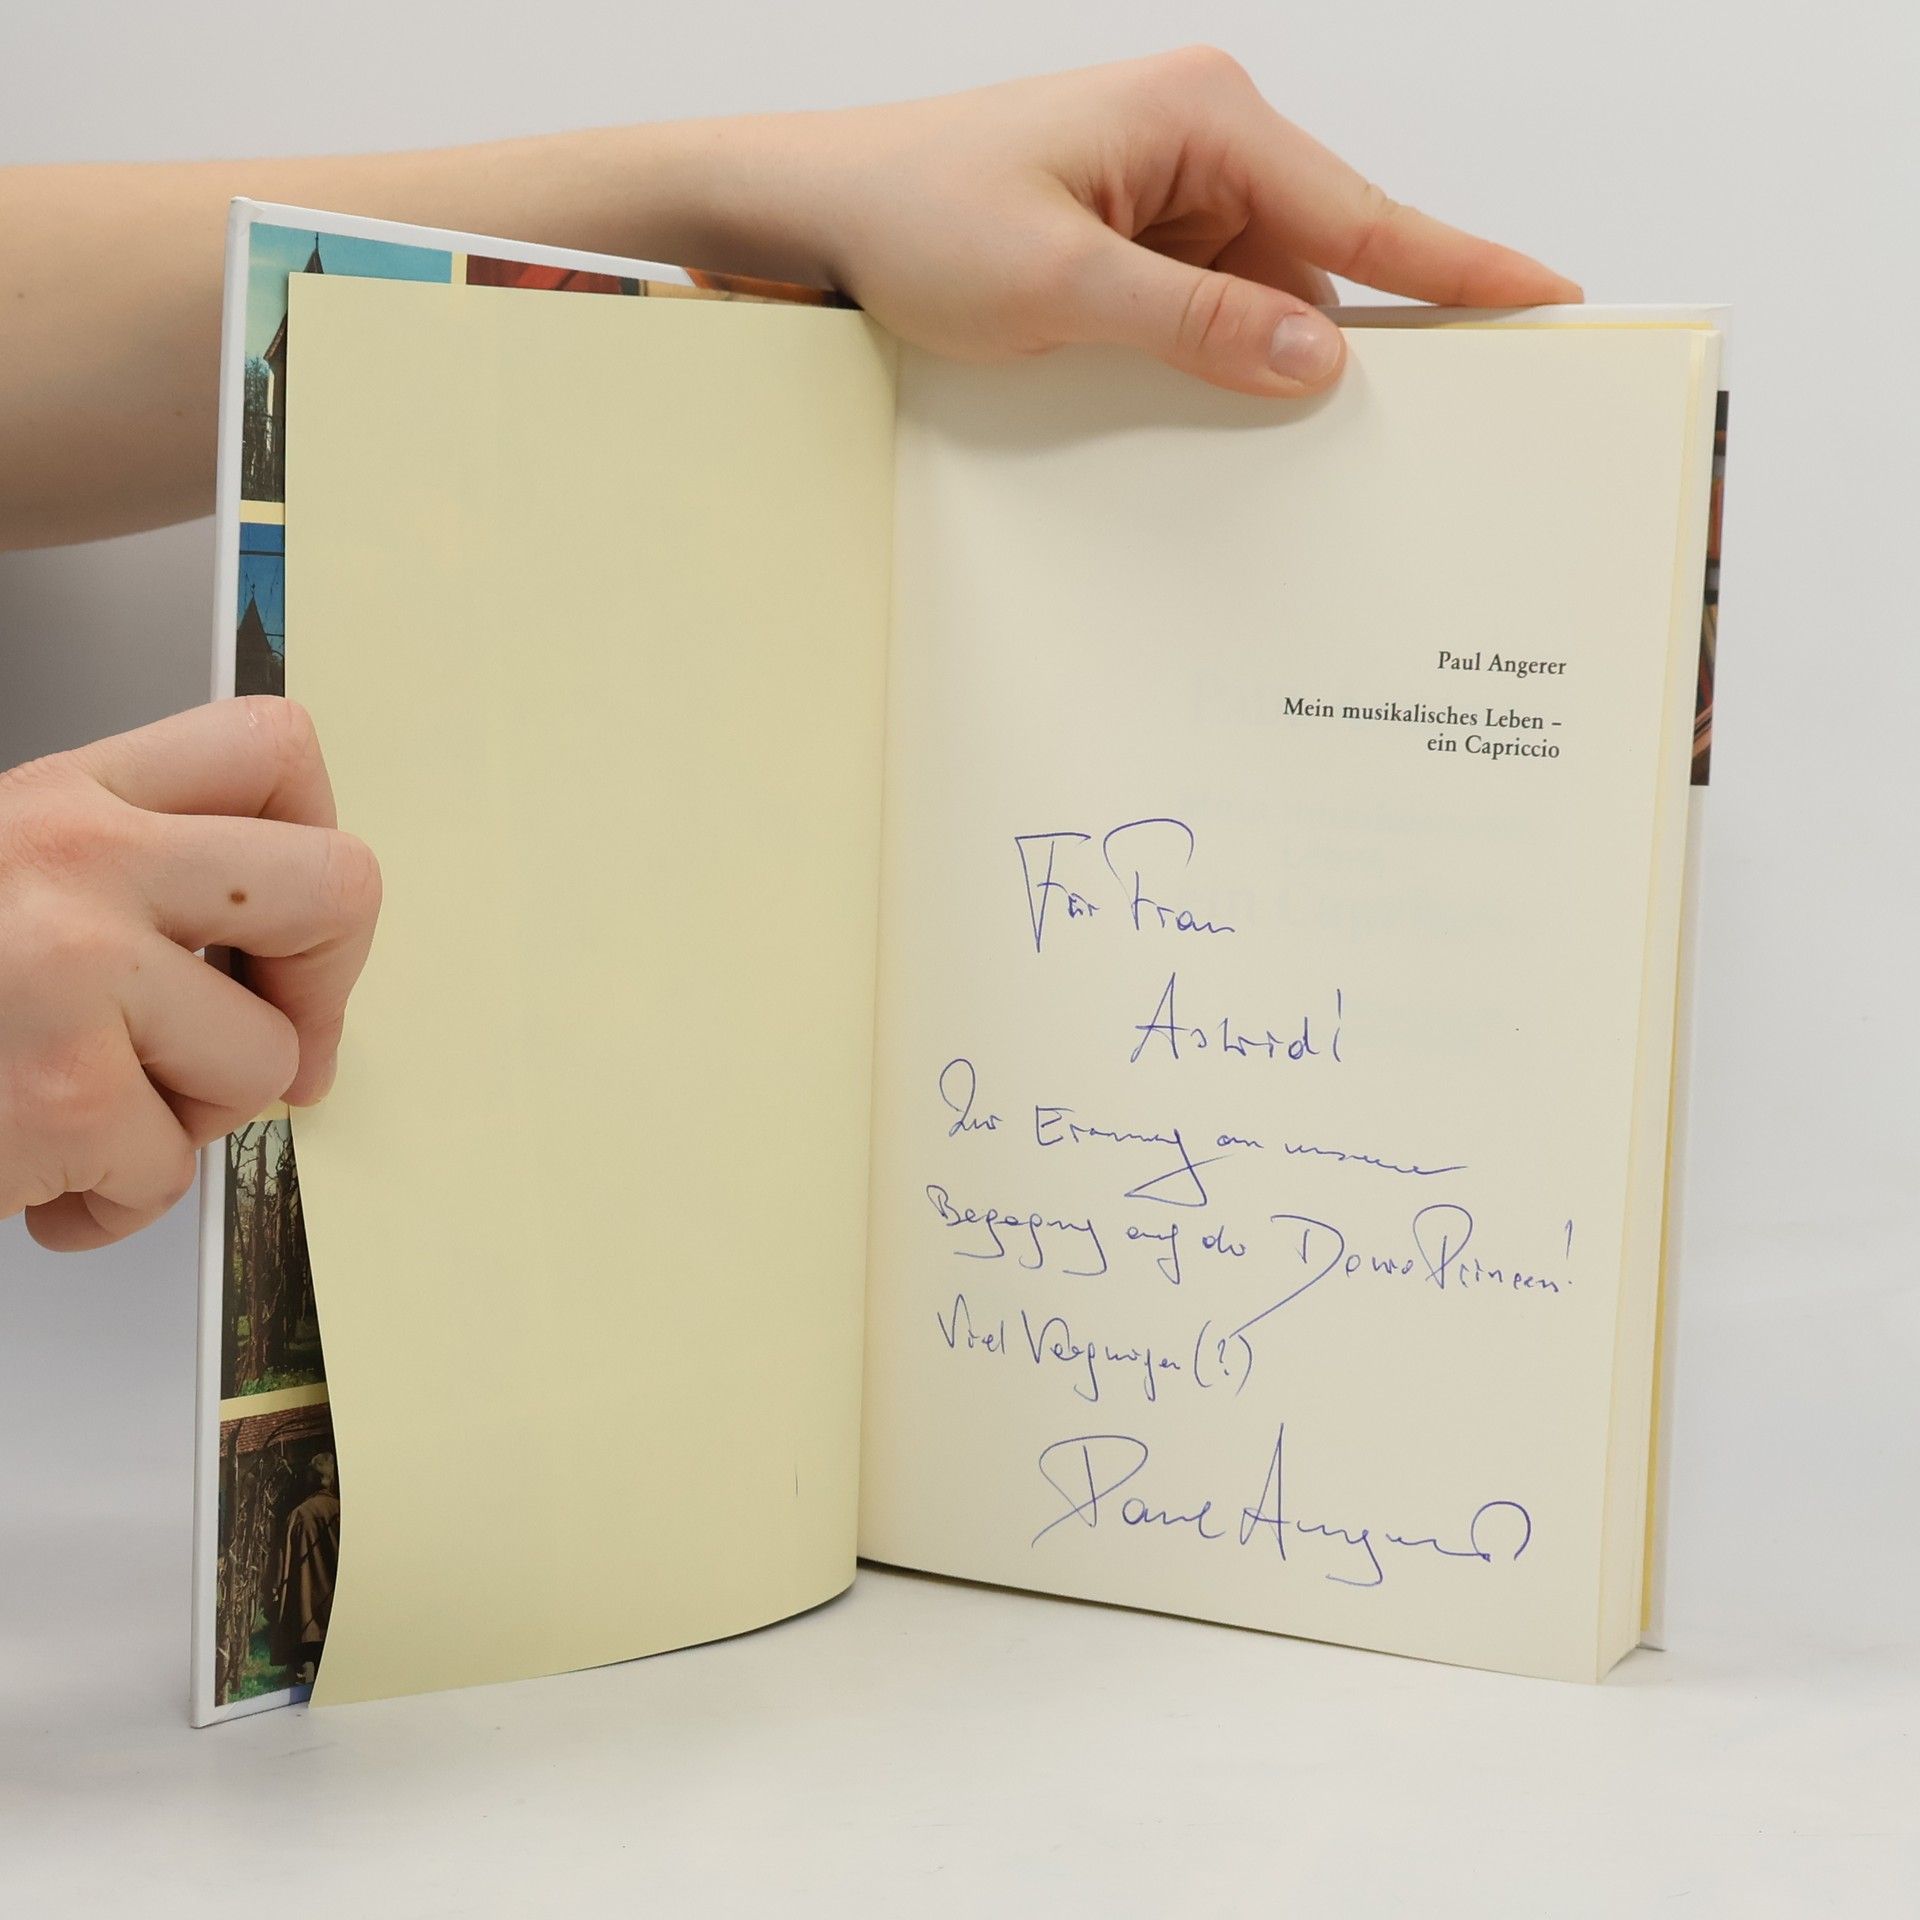 Paul Angerer
Mein musikalisches Leben –
ein Capriccio
Für Frau
Astrid!
Zur Erinnerung an unsere
Begegnung auf der Donau Princess!
Viel Vergnügen (?)
Paul Angerer